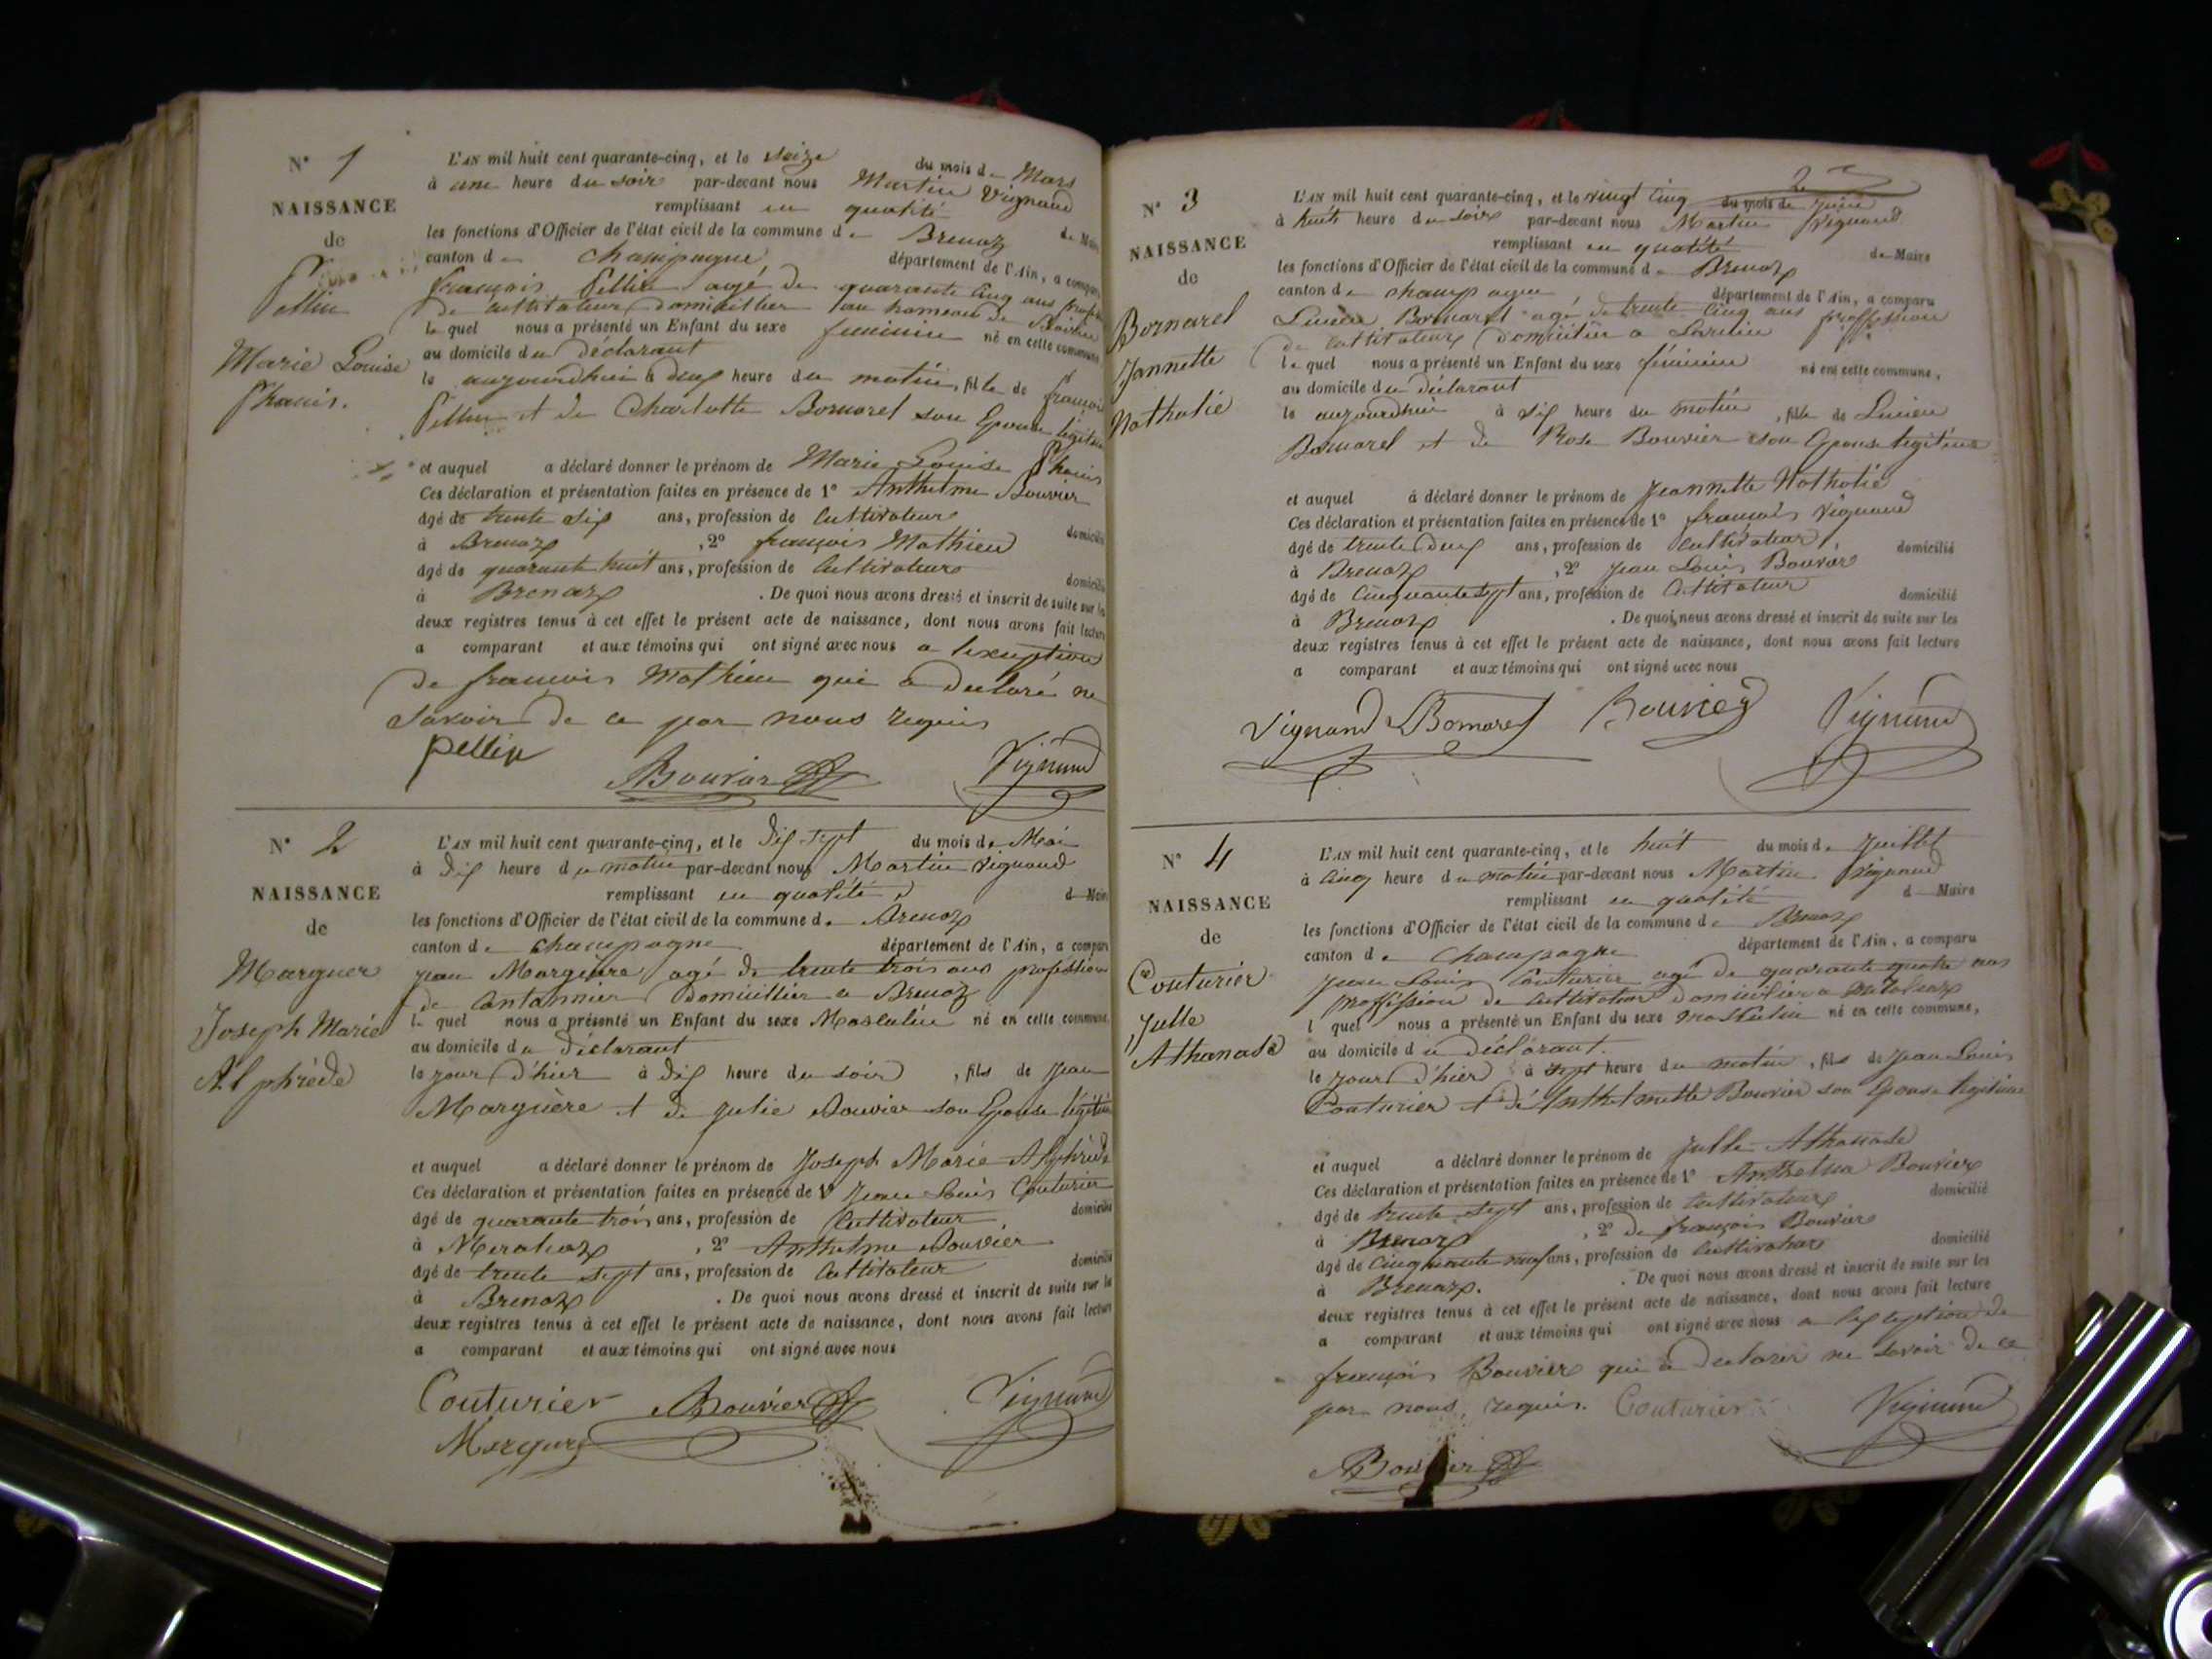 N° 1
NAISSANCE
de
Pellin
Marie Louise
Phanis.
L'AN mil huit cent quarante-cinq, et le seize du mois de Mars
à une heure du soir par-devant nous Martin Vignaud
remplissant en qualité de Maire
les fonctions d'Officier de l'état civil de la commune de Brenaz
canton de Champagne département de l'Ain, a comparu
françois Pellin agé de quarante cinq ans
de cultivateur domicillier au hameau de
le quel nous a présenté un Enfant du sexe feminin né en cette commune
au domicile du Déclarant
le aujourdhui à deux heure du matin, fille de françois
Pellin et de Charlotte Bornarel son Epouse légitime
et auquel a déclaré donner le prénom de Marie Louise Phanis
Ces déclaration et présentation faites en présence de 1° Anthelme Bouvier
âgé de trente six ans, profession de Cultivateur domicilié
à Brenaz , 2° françois Mathieu
âgé de quarante huit ans, profession de Cultivateur domicilié
à Brenaz . De quoi nous avons dressé et inscrit de suite sur les
deux registres tenus à cet effet le présent acte de naissance, dont nous avons fait lecture
a comparant et aux témoins qui ont signé avec nous a lexception
de francois Mathieu qui a declaré ne
savoir de ce par nous requis
pellin
Bouvier Vignaud
N° 2
NAISSANCE
de
Marguer
Joseph Marie
Alphrède
L'AN mil huit cent quarante-cinq, et le Dix-sept du mois de Mai
à Dix heure du matin par-devant nous Martin Vignaud
remplissant en qualité de Maire
les fonctions d'Officier de l'état civil de la commune de Brenaz
canton de Champagne département de l'Ain, a comparu
jean Marguère agé de trente trois ans profession
de Cantonnier Domicillier a Brenaz
le quel nous a présenté un Enfant du sexe Masculin né en cette commune,
au domicile du Déclarant
le jour d'hier à Dix heure du soir , fils de Jean
Marguère et de Julie Bouvier son Epouse légitime
et auquel a déclaré donner le prénom de Joseph Marie Alphrède
Ces déclaration et présentation faites en présence de 1° Jean Louis Couturier
âgé de quarante trois ans, profession de Cultivateur domicilié
à Meraleaz , 2° Anthelme Bouvier
âgé de trente sept ans, profession de Cultivateur domicilié
à Brenaz . De quoi nous avons dressé et inscrit de suite sur les
deux registres tenus à cet effet le présent acte de naissance, dont nous avons fait lecture
a comparant et aux témoins qui ont signé avec nous
Couturier Bouvier Vignaud
2
N° 3
NAISSANCE
de
Bornarel
Jannette
Nathalie
L'AN mil huit cent quarante-cinq, et le vingt cinq du mois de Juin
à huit heure du soir par-devant nous Martin Vignaud
remplissant en qualité de Maire
les fonctions d'Officier de l'état civil de la commune de Brenaz
canton de Champagne département de l'Ain, a comparu
Lucien Bornarel agé de trente cinq ans proffession
de Cultivateur Domicilier a
le quel nous a présenté un Enfant du sexe féminin né en cette commune,
au domicile du déclarant
le aujourdhui à six heure du matin , fille de Lucien
Bornarel et de Rose Bouvier son Epouse legitime
et auquel à déclaré donner le prénom de Jeannette Nathalie
Ces déclaration et présentation faites en présence de 1° françois Vignaud
âgé de trente Deux ans, profession de Cultivateur, domicilié
à Brenaz , 2° Jean Louis Bouvier
âgé de Cinquante sept ans, profession de Cultivateur domicilié
à Brenaz . De quoi nous avons dressé et inscrit de suite sur les
deux registres tenus à cet effet le présent acte de naissance, dont nous avons fait lecture
a comparant et aux témoins qui ont signé avec nous
Vignaud LBornarel Bouvier Vignaud
N° 4
NAISSANCE
de
Couturier
Julle
Athanase
L'AN mil huit cent quarante-cinq, et le huit du mois de Juillet
à Cinq heure du matin par-devant nous Martin Vignaud
remplissant en qualité de Maire
les fonctions d'Officier de l'état civil de la commune de Brenaz
canton de Champagne département de l'Ain, a comparu
Jean Louis Couturier agé de quarante quatre ans
proffession de Cultivateur domicilier a
l quel nous a présenté un Enfant du sexe Masculin né en cette commune,
au domicile du déclarant.
le jour d'hier à sept heure du matin , fils de Jean Louis
Couturier et de Anthelmette Bouvier son Epouse legitime
et auquel a déclaré donner le prénom de Julle Athanase
Ces déclaration et présentation faites en présence de 1° Anthelme Bouvier
âgé de trente sept ans, profession de Cultivateur domicilié
à Brenaz , 2° De françois Bouvier
âgé de Cinquante neuf ans, profession de Cultivateur domicilié
à Brenaz. . De quoi nous avons dressé et inscrit de suite sur les
deux registres tenus à cet effet le présent acte de naissance, dont nous avons fait lecture
a comparant et aux témoins qui ont signé avec nous a lexception de
françois Bouvier qui a declarer ne savoir de ce
par nous requis. Couturier Vignaud
Bouvier